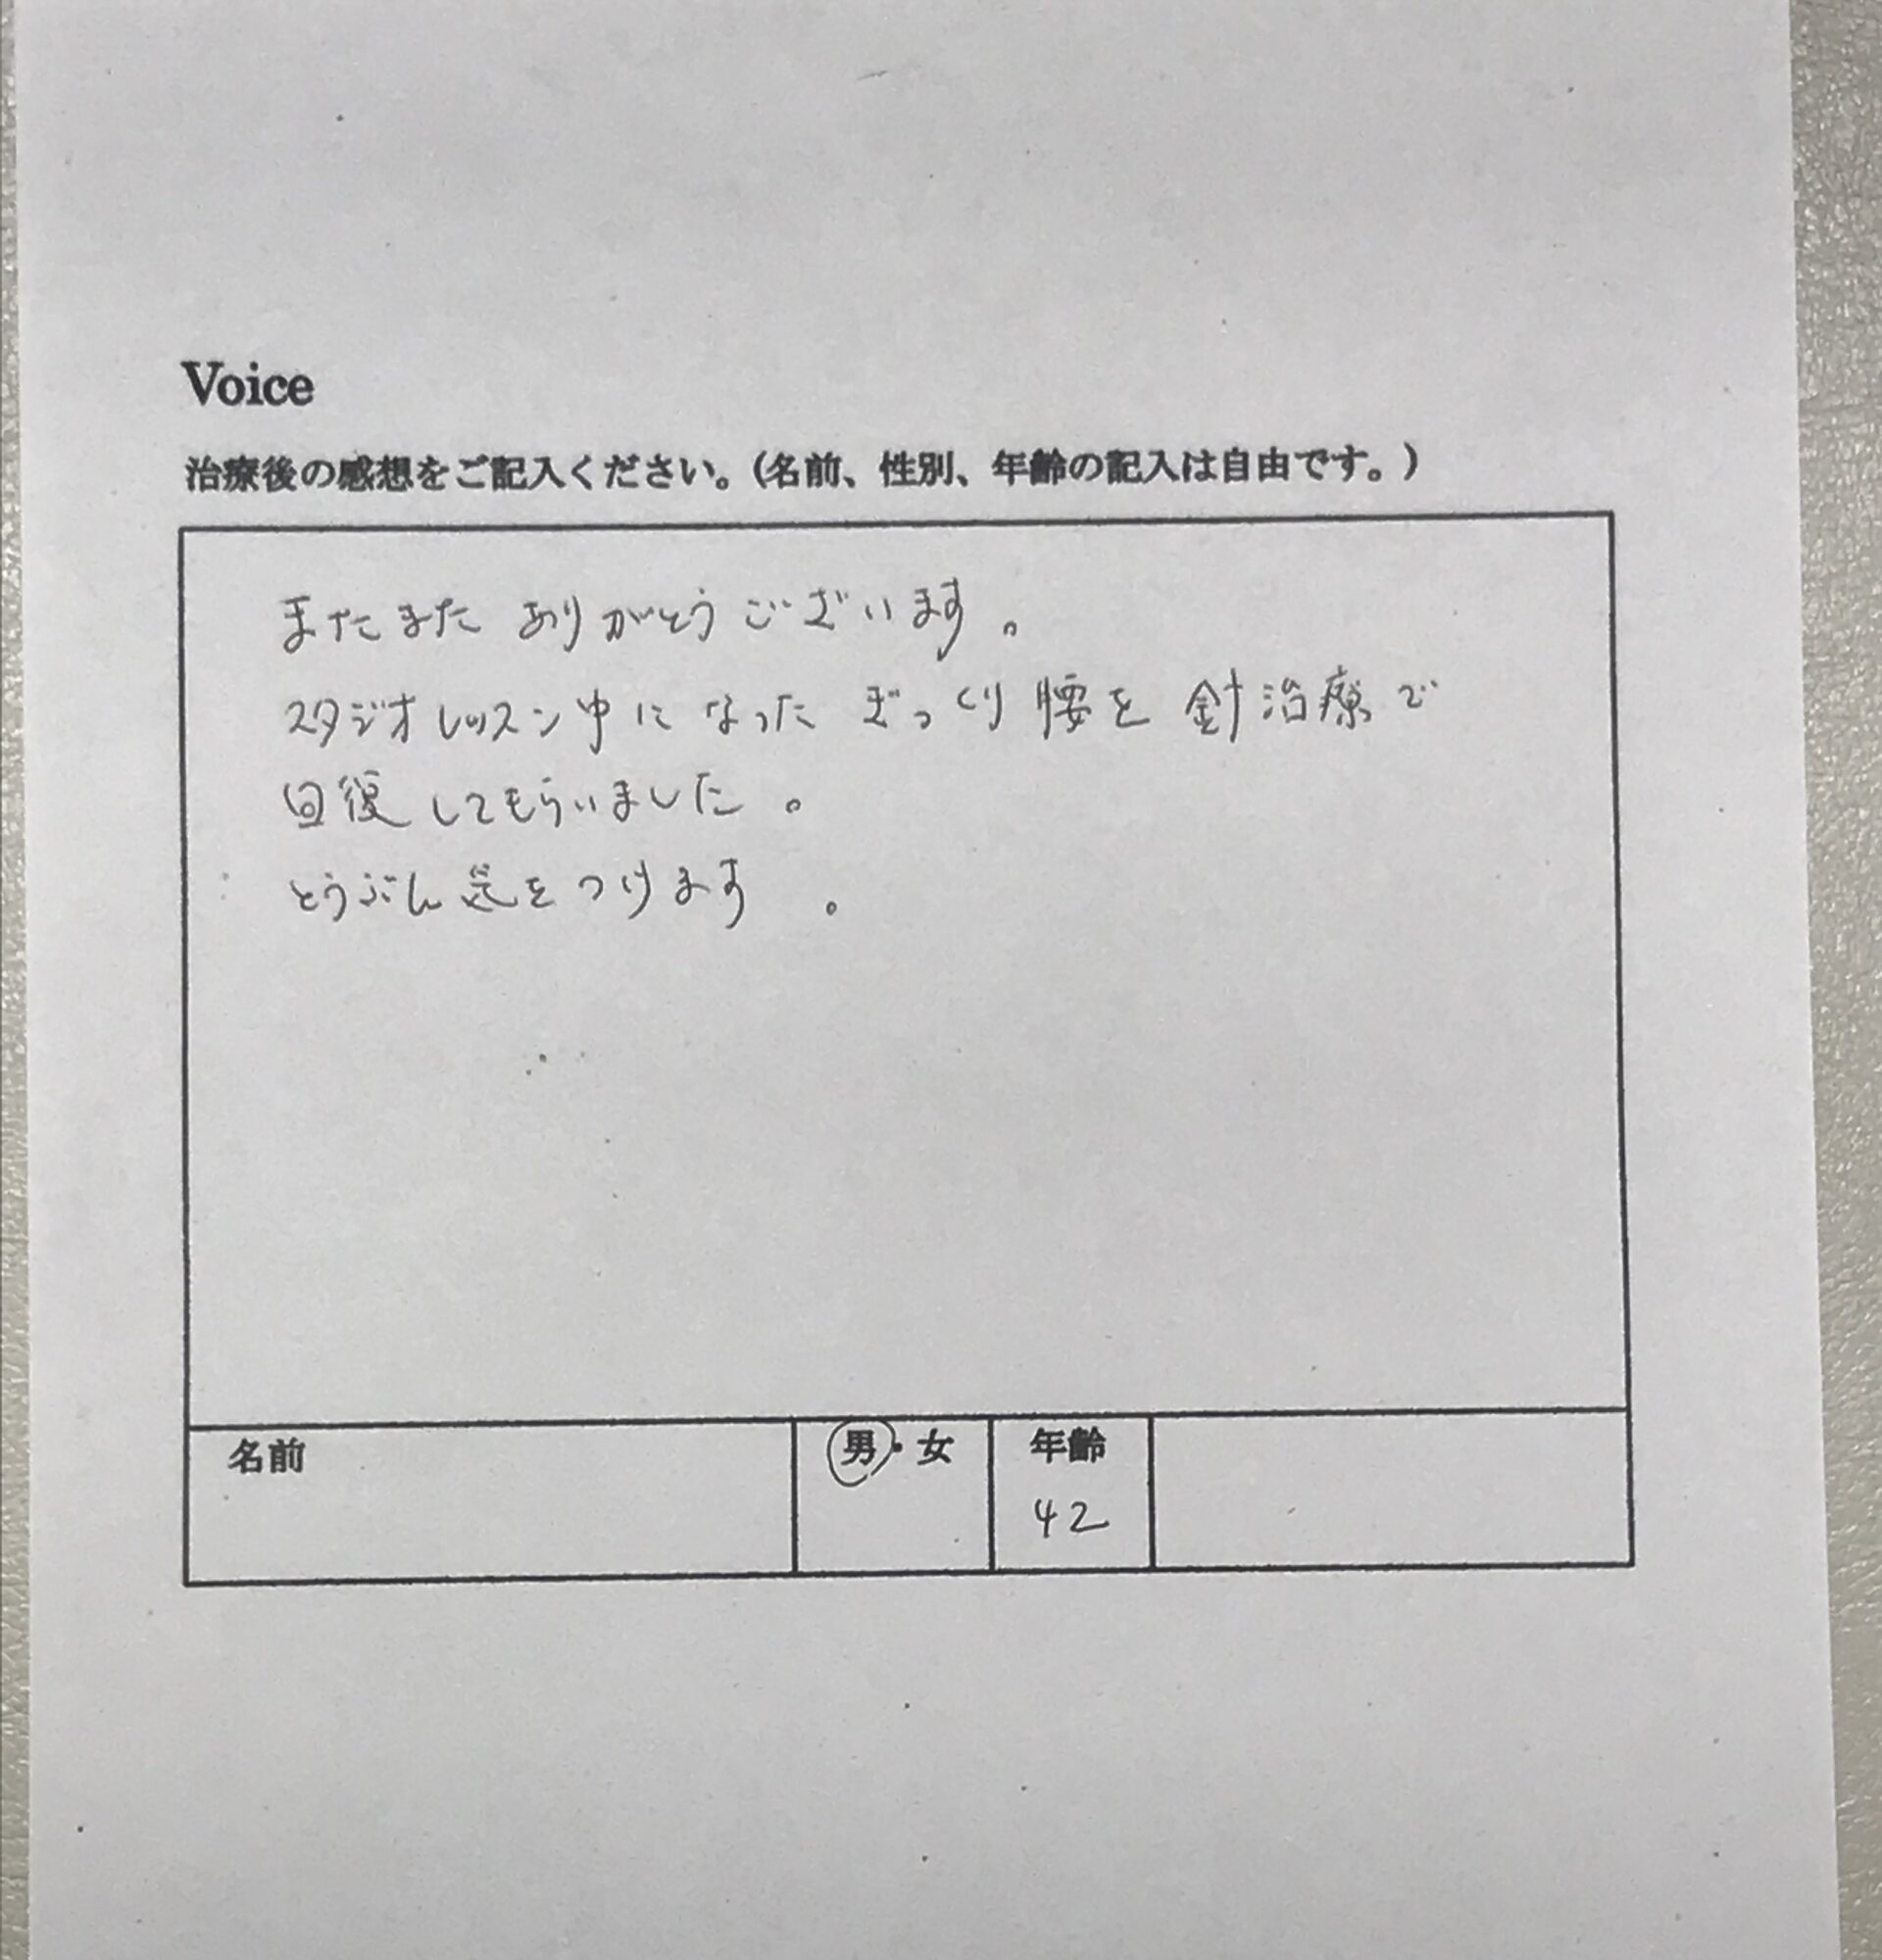 Voice
治療後の感想をご記入ください。(名前、性別、年齢の記入は自由です。)
またまたありがとうございます。
スタジオレッスン中になったぎっくり腰を針治療で
回復してもらいました。
とうぶん気をつけます。
名前 男・女 年齢
42